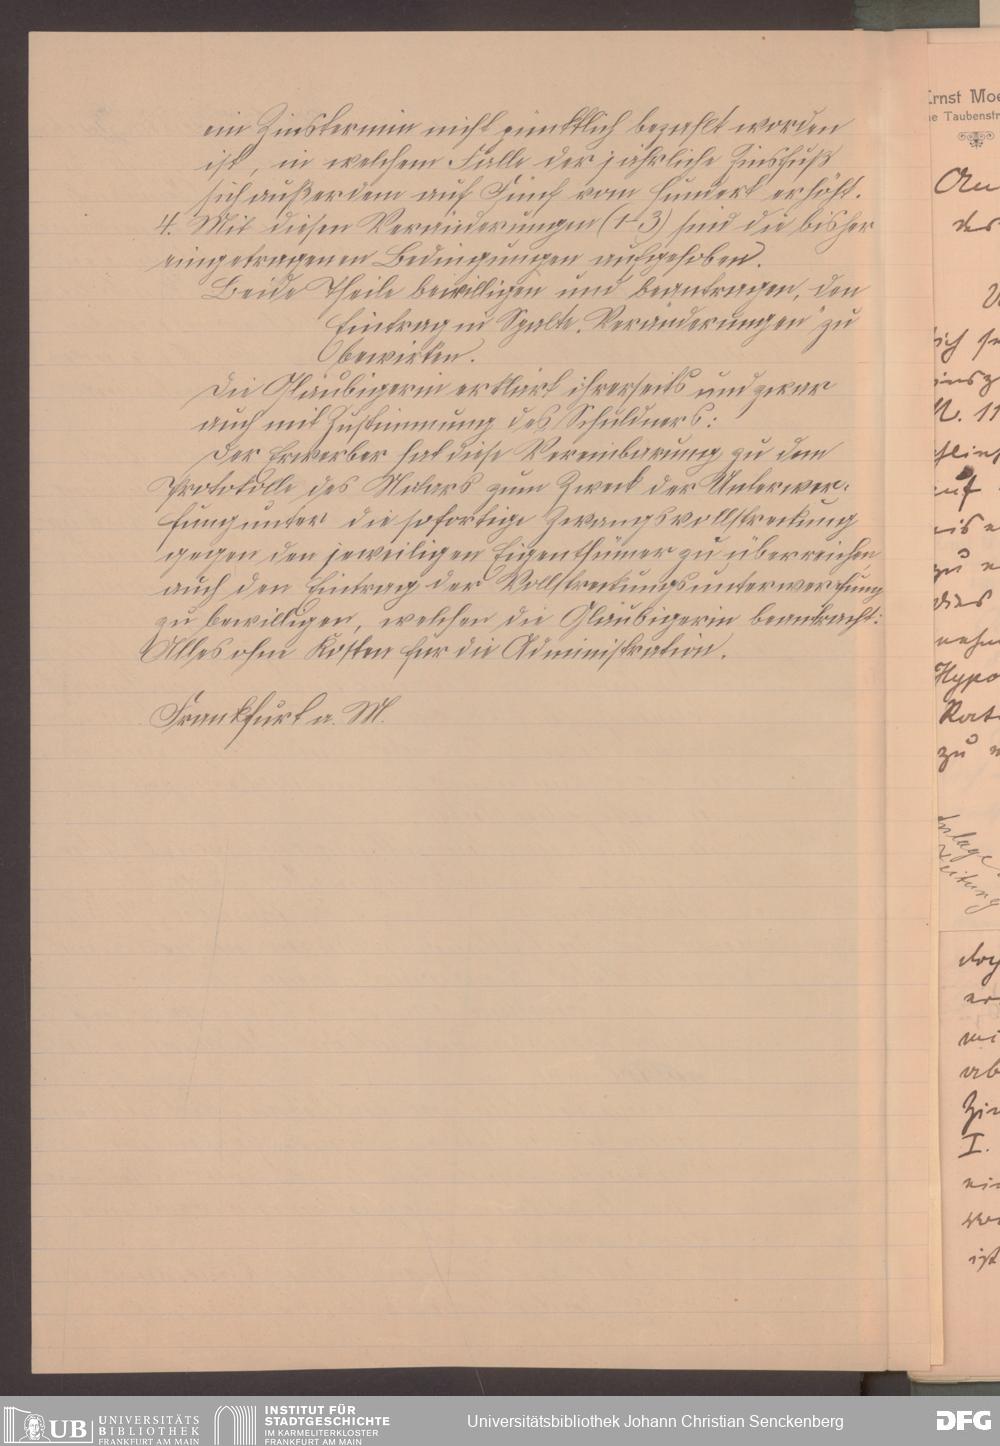 ein Zinstermin nicht pünktlich bezahlt worden
ist, in welchem Falle der jährliche Zinsfuß
sich außerdem auf Fünf vom Hundert erhöht.
4. Mit diesen Veränderungen (1-3) sind die bisher
eingetragenen Bedingungen aufgehoben.
Beide Theile bewilligen und beantragen, den
Eintrag in Spalte „Veränderungen" zu
bewirken.
Die Gläubigerin erklärt ihrerseits und zwar
auch mit Zustimmung des Schuldners:
Der Erwerber hat diese Vereinbarung zu dem
Protokolle des Notars zum Zweck der Unterwer-
fung unter die sofortige Zwangsvollstreckung
gegen den jeweiligen Eigenthümer zu überreichen,
auch den Eintrag der Vollstreckungsunterwerfung
zu bewilligen, welchen die Gläubigerin beantragt:
Alles ohne Kosten für die Administration.
Frankfurt a. M.
Ernst Moe
ne Taubenstr
An
des
ich
N. 11
auf
zu
dies
Hypo
Rat
zu
Anlage
Zeitung
ab
Zin
I.
ist
UB UNIVERSITÄTS
BIBLIOTHEK
FRANKFURT AM MAIN
INSTITUT FÜR
STADTGESCHICHTE
IM KARMELITERKLOSTER
FRANKFURT AM MAIN
Universitätsbibliothek Johann Christian Senckenberg
DFG